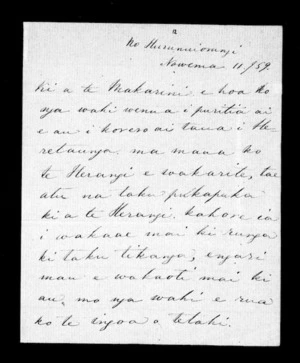 Ko Hurunuiorangi
Nowema 11/59
ki a te Makarini e hoa ko
nga wahi wenua i puritia ai
e au i korero ai taua i He
retaunga. ma maua ko
te Herangi e wakarite, tae
atu na taku pukapuka
ki a te Herangi. kahore ia
i wahaae mai ki runga
ki taku tikanga, engari
mau e wahaoti mai ki
au, mo nga wahi e rua
ko te ingoa o tetahi.